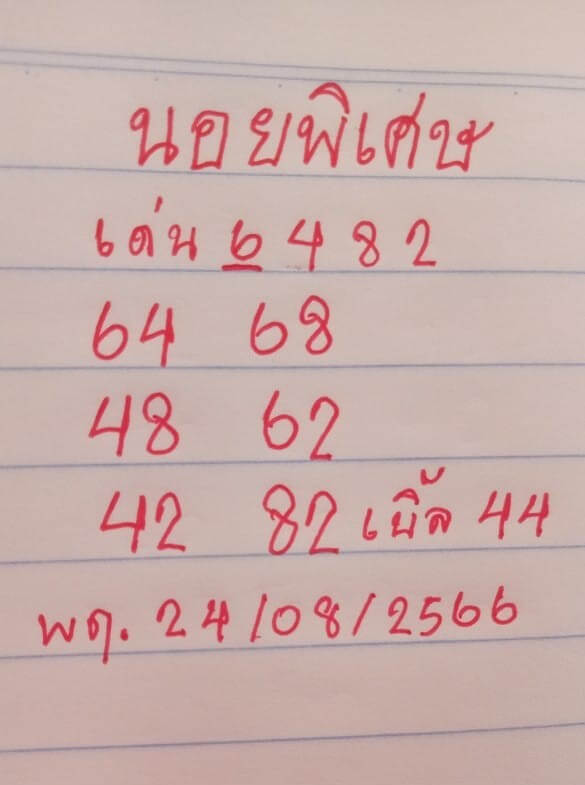 นอยพิเศษ
เด่น 6 4 8 2
64 68
48 62
42 82 เบิ้ล 44
พฤ. 24/08/2566